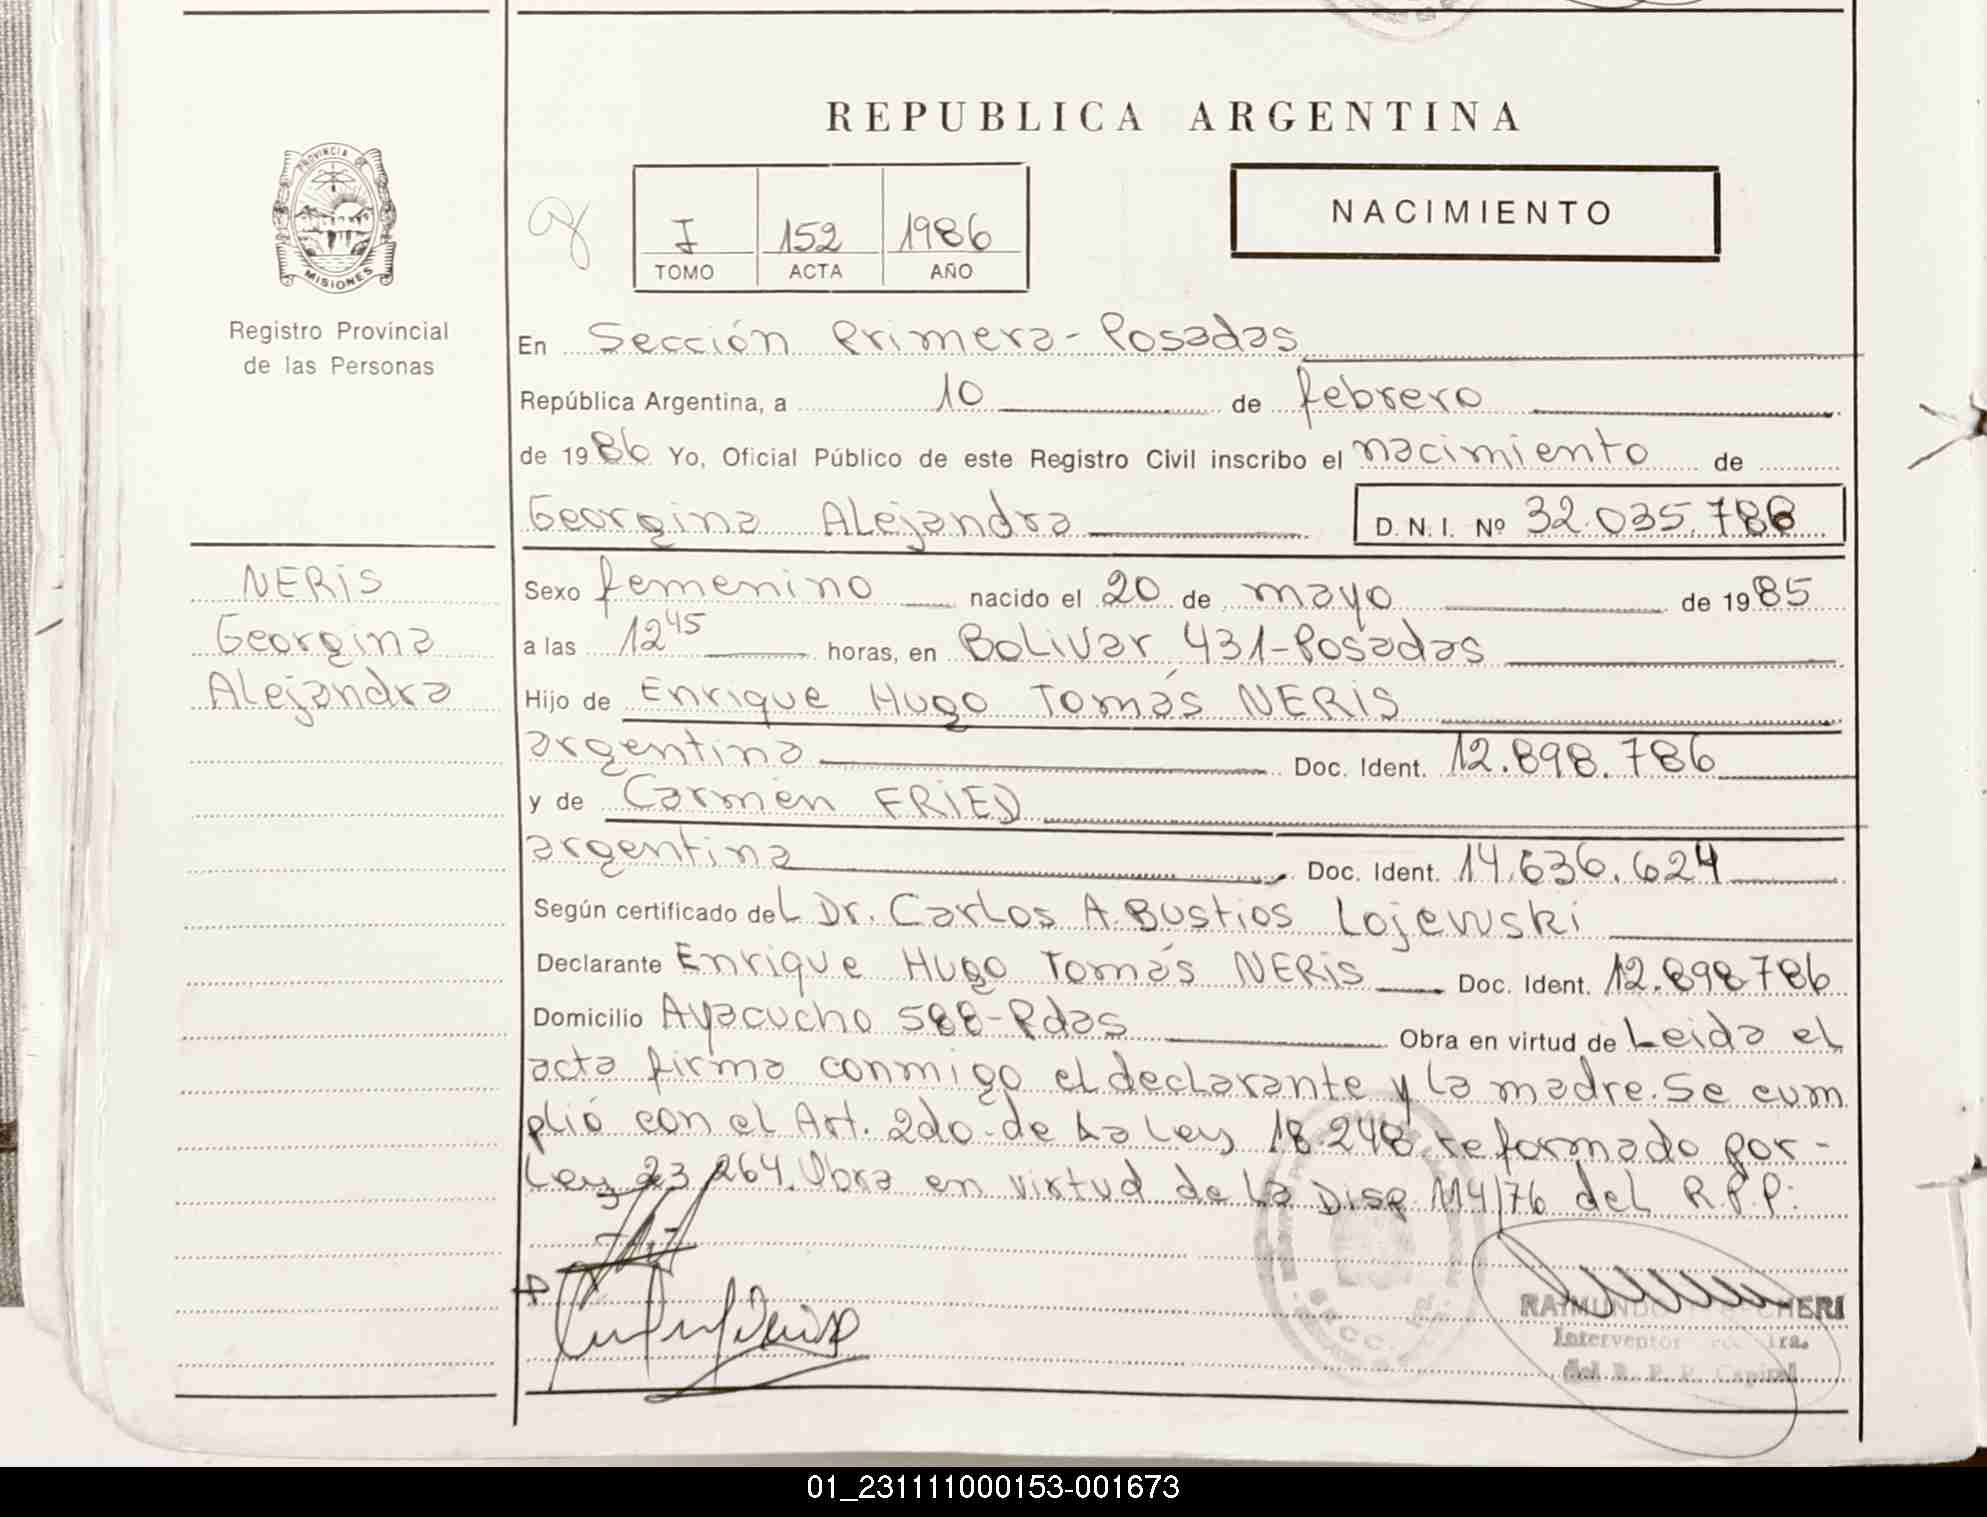 REPUBLICA ARGENTINA
PROVINCIA DE
MISIONES
Registro Provincial
de las Personas
I 152 1986
TOMO ACTA AÑO
NACIMIENTO
En Sección Primera - Posadas
República Argentina, a 10 de febrero
de 1986 Yo, Oficial Público de este Registro Civil inscribo el nacimiento de
Georgina Alejandra D. N. I. Nº 32.035.786
NERIS
Georgina
Alejandra
Sexo femenino nacido el 20 de mayo de 1985
a las 12 45 horas, en Bolivar 431-Posadas
Hijo de Enrique Hugo Tomás NERIS
argentina Doc. Ident. 12.898.786
y de Carmen FRIED
argentina Doc. Ident. 14.636.624
Según certificado del Dr. Carlos A. Bustios Lojewski
Declarante Enrique Hugo Tomás NERIS Doc. Ident. 12.898786
Domicilio Ayacucho 588-Pdas Obra en virtud de Leida el
acta firma conmigo el declarante y la madre. Se cum
plió con el Art. 2do. de la Ley 18.248 reformado por-
Ley 23.264. Obra en virtud de la Disp. 114/76 del R.P.P.
Interventor
del R. P. P. Capital
01_231111000153-001673